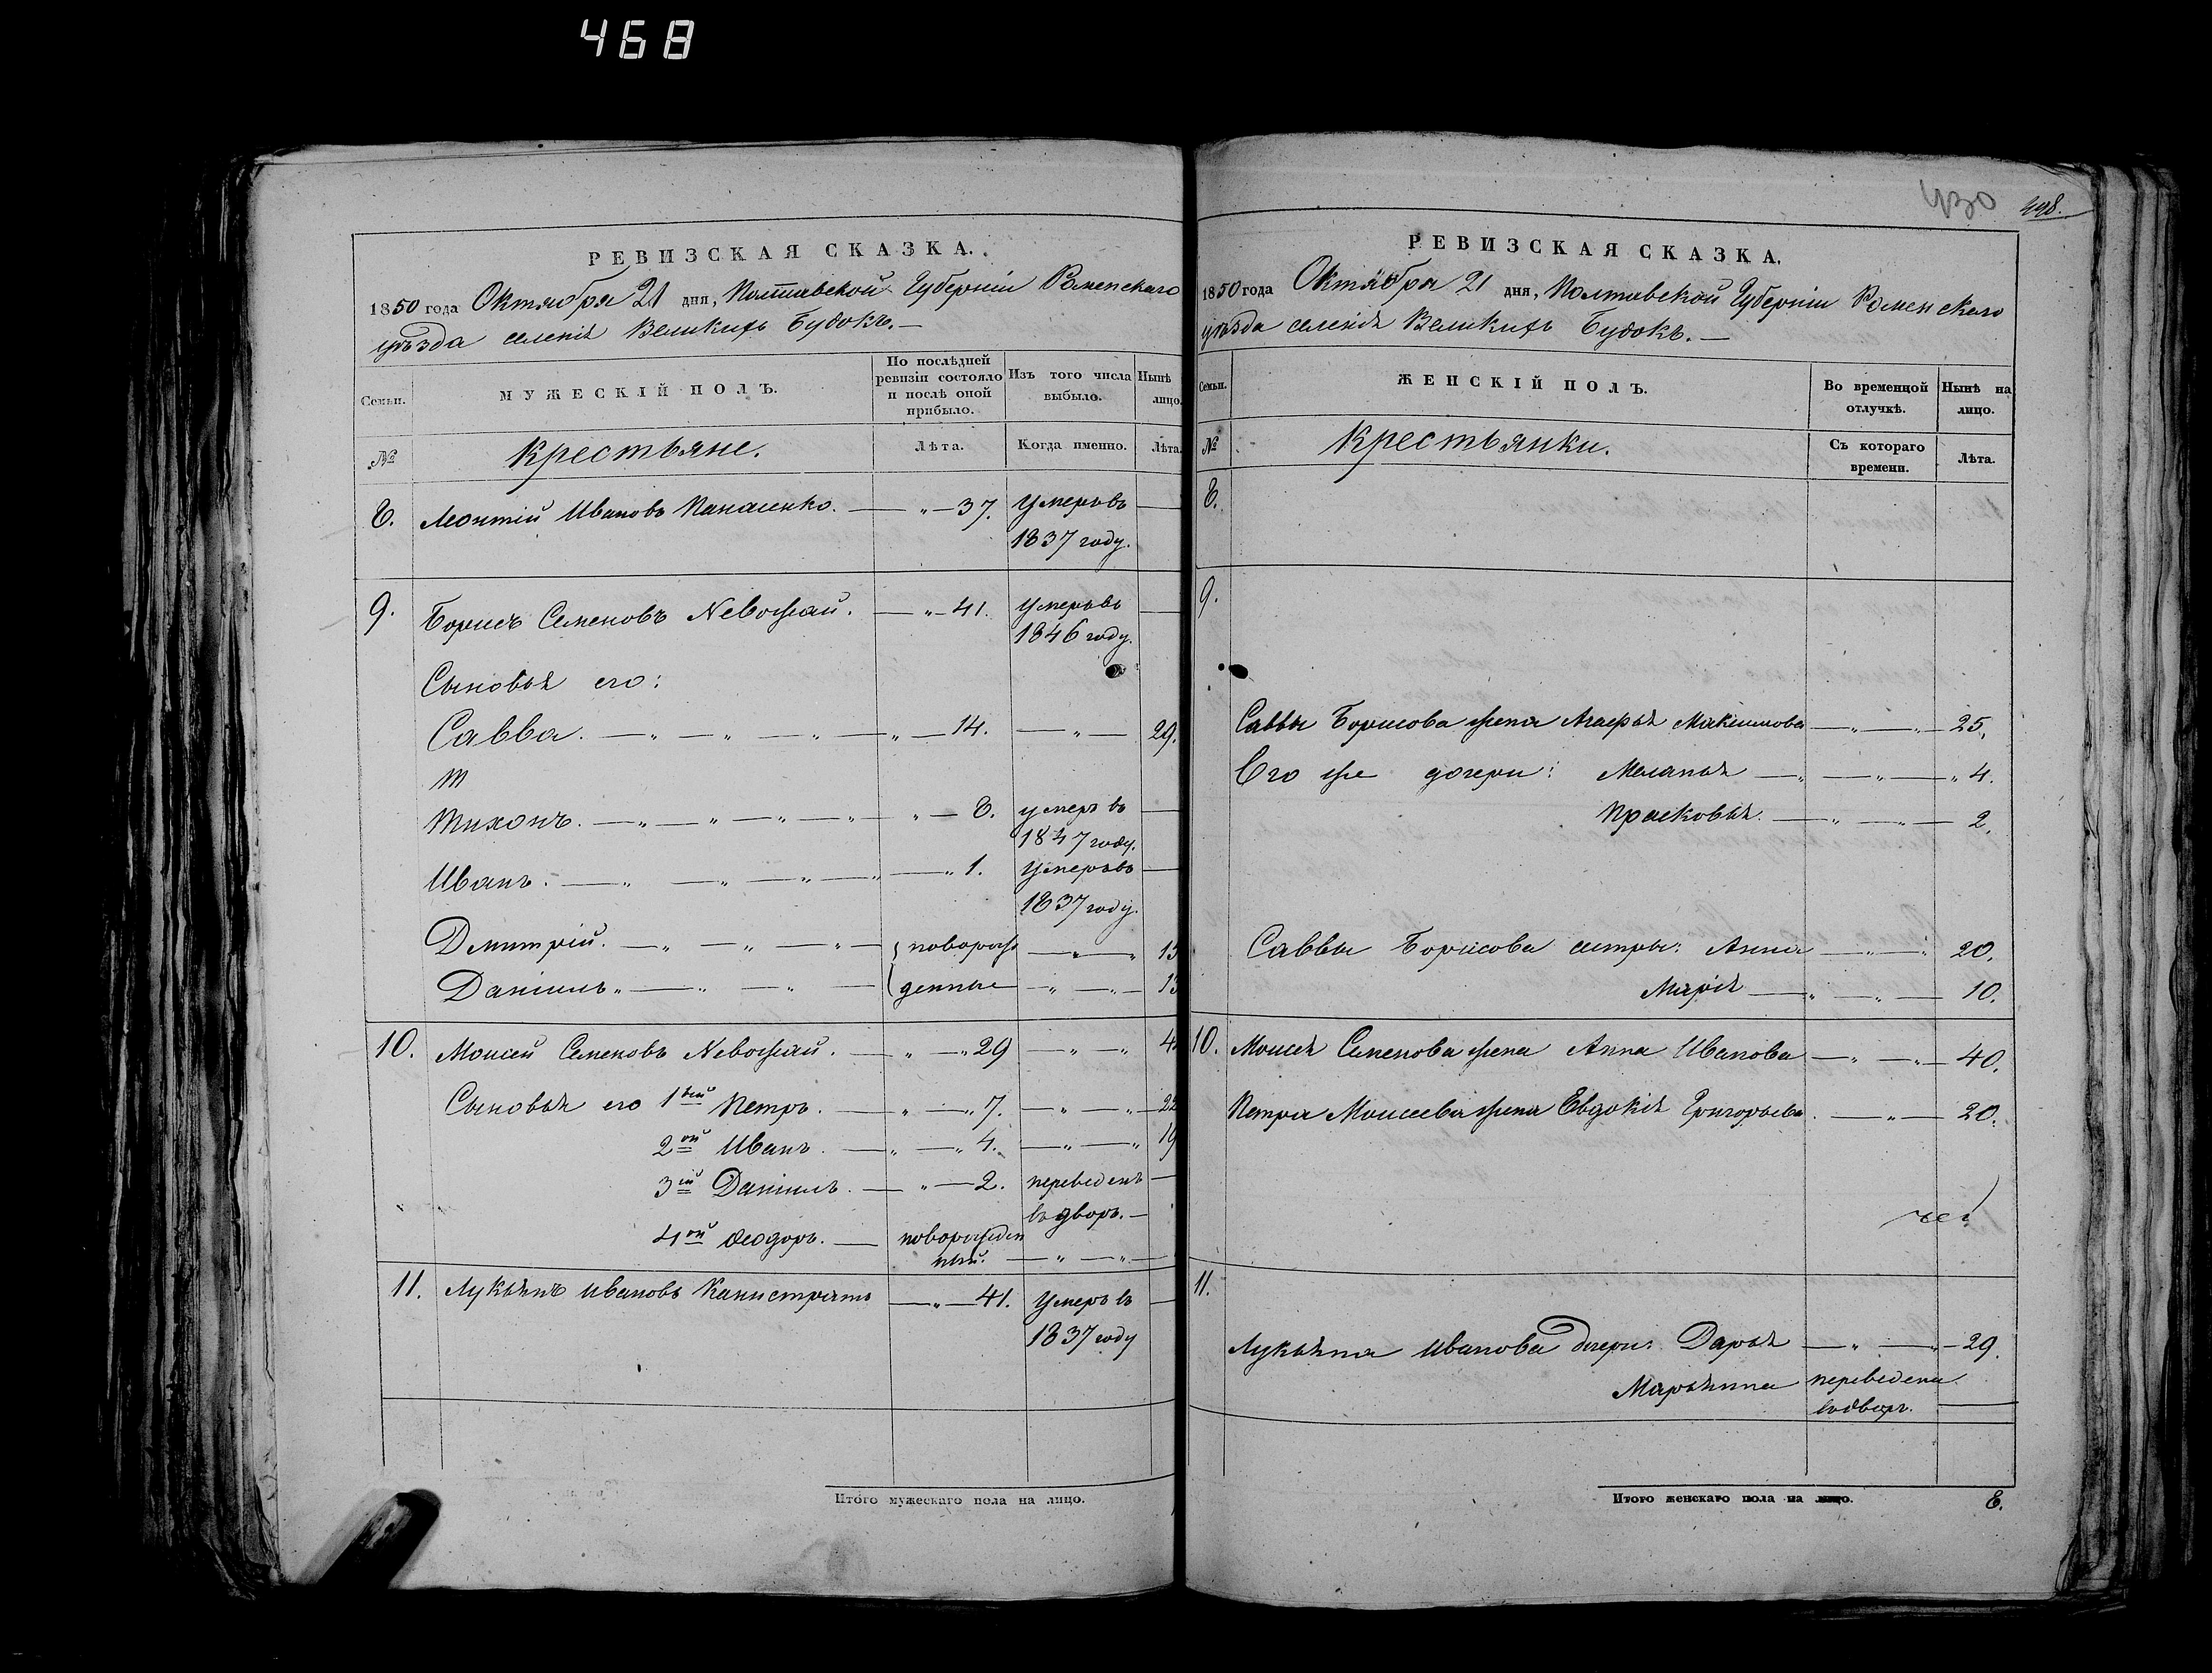 468
430 498.
РЕВИЗСКАЯ СКАЗКА.
1850 года Октября 21 дня, Полтавской Губерніи Роменскаго
уѣзда селенія Великихъ Будокъ.—
Семьи. МУЖЕСКІЙ ПОЛЪ. По послѣдней ревизіи состояло и послѣ оной прибыло. Изъ того числа выбыло. Нынѣ лицо.
№ Крестьяне. Лѣта. Когда именно. Лѣта.
8. Леонтій Ивановъ Панасенко. — " — 37. Умеръ въ —
1837 году.
9. Борисъ Семеновъ Невожай. — " — 41. Умеръ въ —
1846 году.
Сыновья его:
Савва. — " — 14. — " — 29.
т
Тихонъ. — " — 8. умеръ въ —
1847 году.
Иванъ. — " — 1. Умеръ въ —
1837 году.
Дмитрій. — " — новорож — " — 15
Даніилъ. — " — денные — " — 13
10. Моисей Семеновъ Невожай. — " — 29 — " — 4
Сыновья его 1вый Петръ. — " — 7. — " — 22
2ой Иванъ. — " — 4. — " — 19
3ій Даніилъ. — " — 2. переведенъ —
въ дворъ. —
4ой Ѳеодоръ. — новорожден
ный. — " —
11. Лукьянъ Ивановъ Канистратъ — " — 41. Умеръ въ —
1837 году
Итого мужескаго пола на лицо.
РЕВИЗСКАЯ СКАЗКА.
1850 года Октября 21 дня, Полтавской Губерніи Роменскаго
уѣзда селенія Великихъ Будокъ.—
Семьи. ЖЕНСКІЙ ПОЛЪ. Во временной отлучкѣ. Нынѣ на лицо.
№ Крестьянки. Съ котораго времени. Лѣта.
8.
9.
Саввы Борисова жена Агафья Максимова — " — 25.
Его же дочери: Меланья — " — 4.
Прасковья. — " — 2.
Саввы Борисова сестры: Анна — " — 20.
Марія — " — 10.
10. Моисея Семенова жена Анна Иванова — " — 40.
Петра Моисеева жена Евдокія Григорьева. — " — 20.
11.
Лукьяна Иванова дочери: Дарья — " — 29.
Марьянна переведена
въ дворъ. —
Итого женскаго пола на лицо. 8.